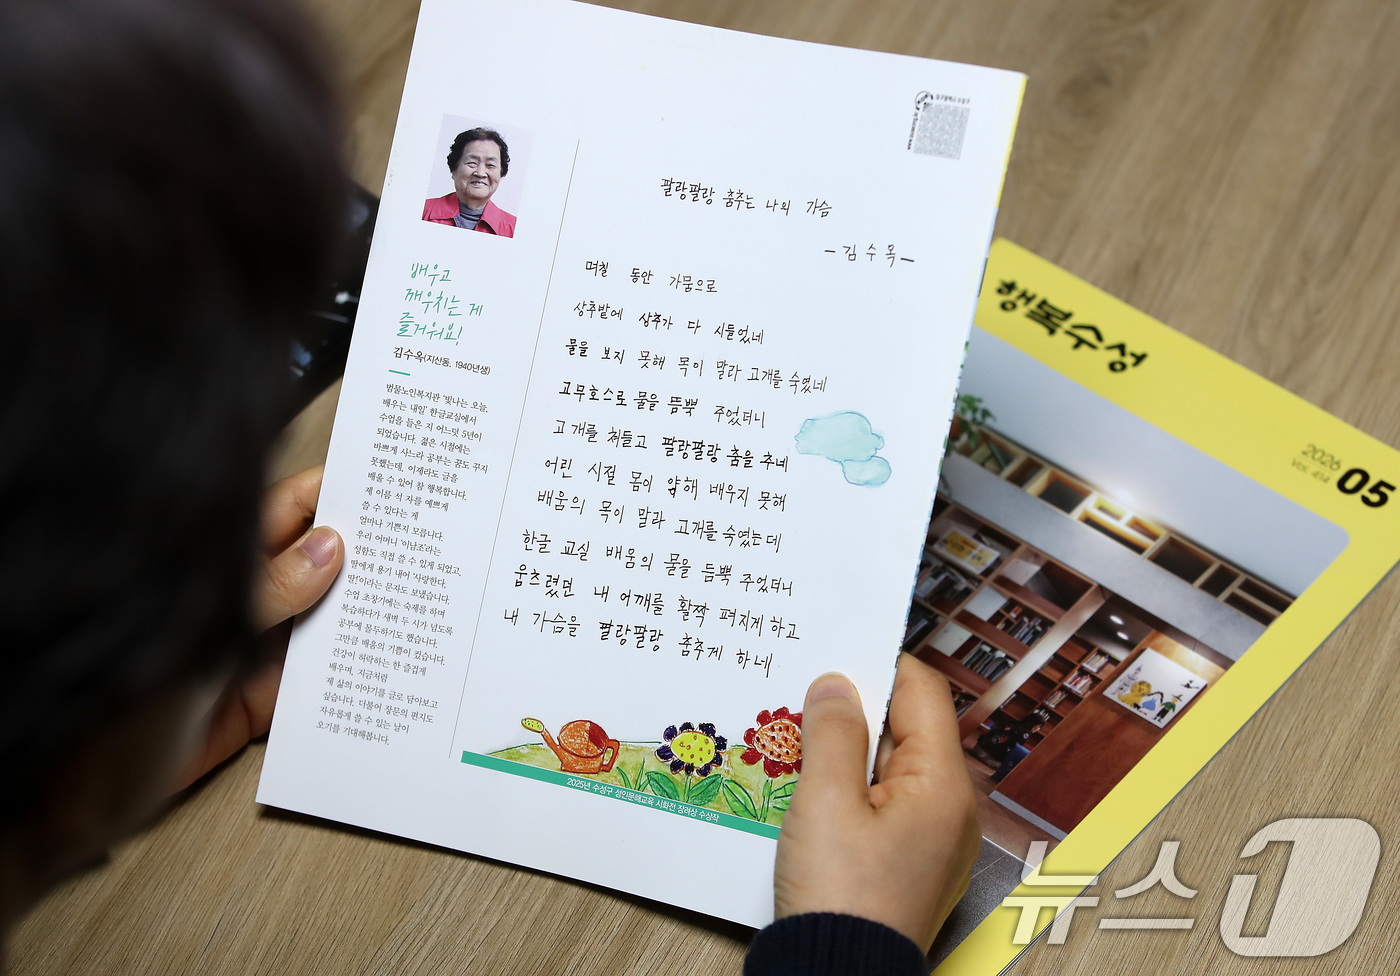 팔랑팔랑 춤추는 나의 가슴
- 김수옥 -
며칠 동안 가뭄으로
상추밭에 상추가 다 시들었네
물을 보지 못해 목이 말라 고개를 숙였네
고무호스로 물을 듬뿍 주었더니
고개를 쳐들고 팔랑팔랑 춤을 추네
어린 시절 몸이 약해 배우지 못해
배움의 목이 말라 고개를 숙였는데
한글 교실 배움의 물을 듬뿍 주었더니
움츠렸던 내 어깨를 활짝 펴지게 하고
내 가슴을 팔랑팔랑 춤추게 하네
배우고
깨우치는 게
즐거워요!
김수옥(지산동, 1940년생)
범물노인복지관 '빛나는 오늘,
배우는 내일' 한글교실에서
수업을 들은 지 어느덧 5년이
되었습니다. 젊은 시절에는
바쁘게 사느라 공부는 꿈도 꾸지
못했는데, 이제라도 글을
배울 수 있어 참 행복합니다.
제 이름 석 자를 예쁘게
쓸 수 있다는 게
얼마나 기쁜지 모릅니다.
우리 어머니 '이남조'라는
성함도 직접 쓸 수 있게 되었고,
딸에게 용기 내어 '사랑한다,
딸!'이라는 문자도 보냈습니다.
수업 초창기에는 숙제를 하며
복습하다가 새벽 두 시가 넘도록
공부에 몰두하기도 했습니다.
그만큼 배움의 기쁨이 컸습니다.
건강이 허락하는 한 즐겁게
배우며, 지금처럼
제 삶의 이야기를 글로 담아보고
싶습니다. 더불어 장문의 편지도
자유롭게 쓸 수 있는 날이
오기를 기대해봅니다.
2025년 수성구 성인문해교육 시화전 장려상 수상작
행복수성
2026
Vol. 414
05
뉴스1